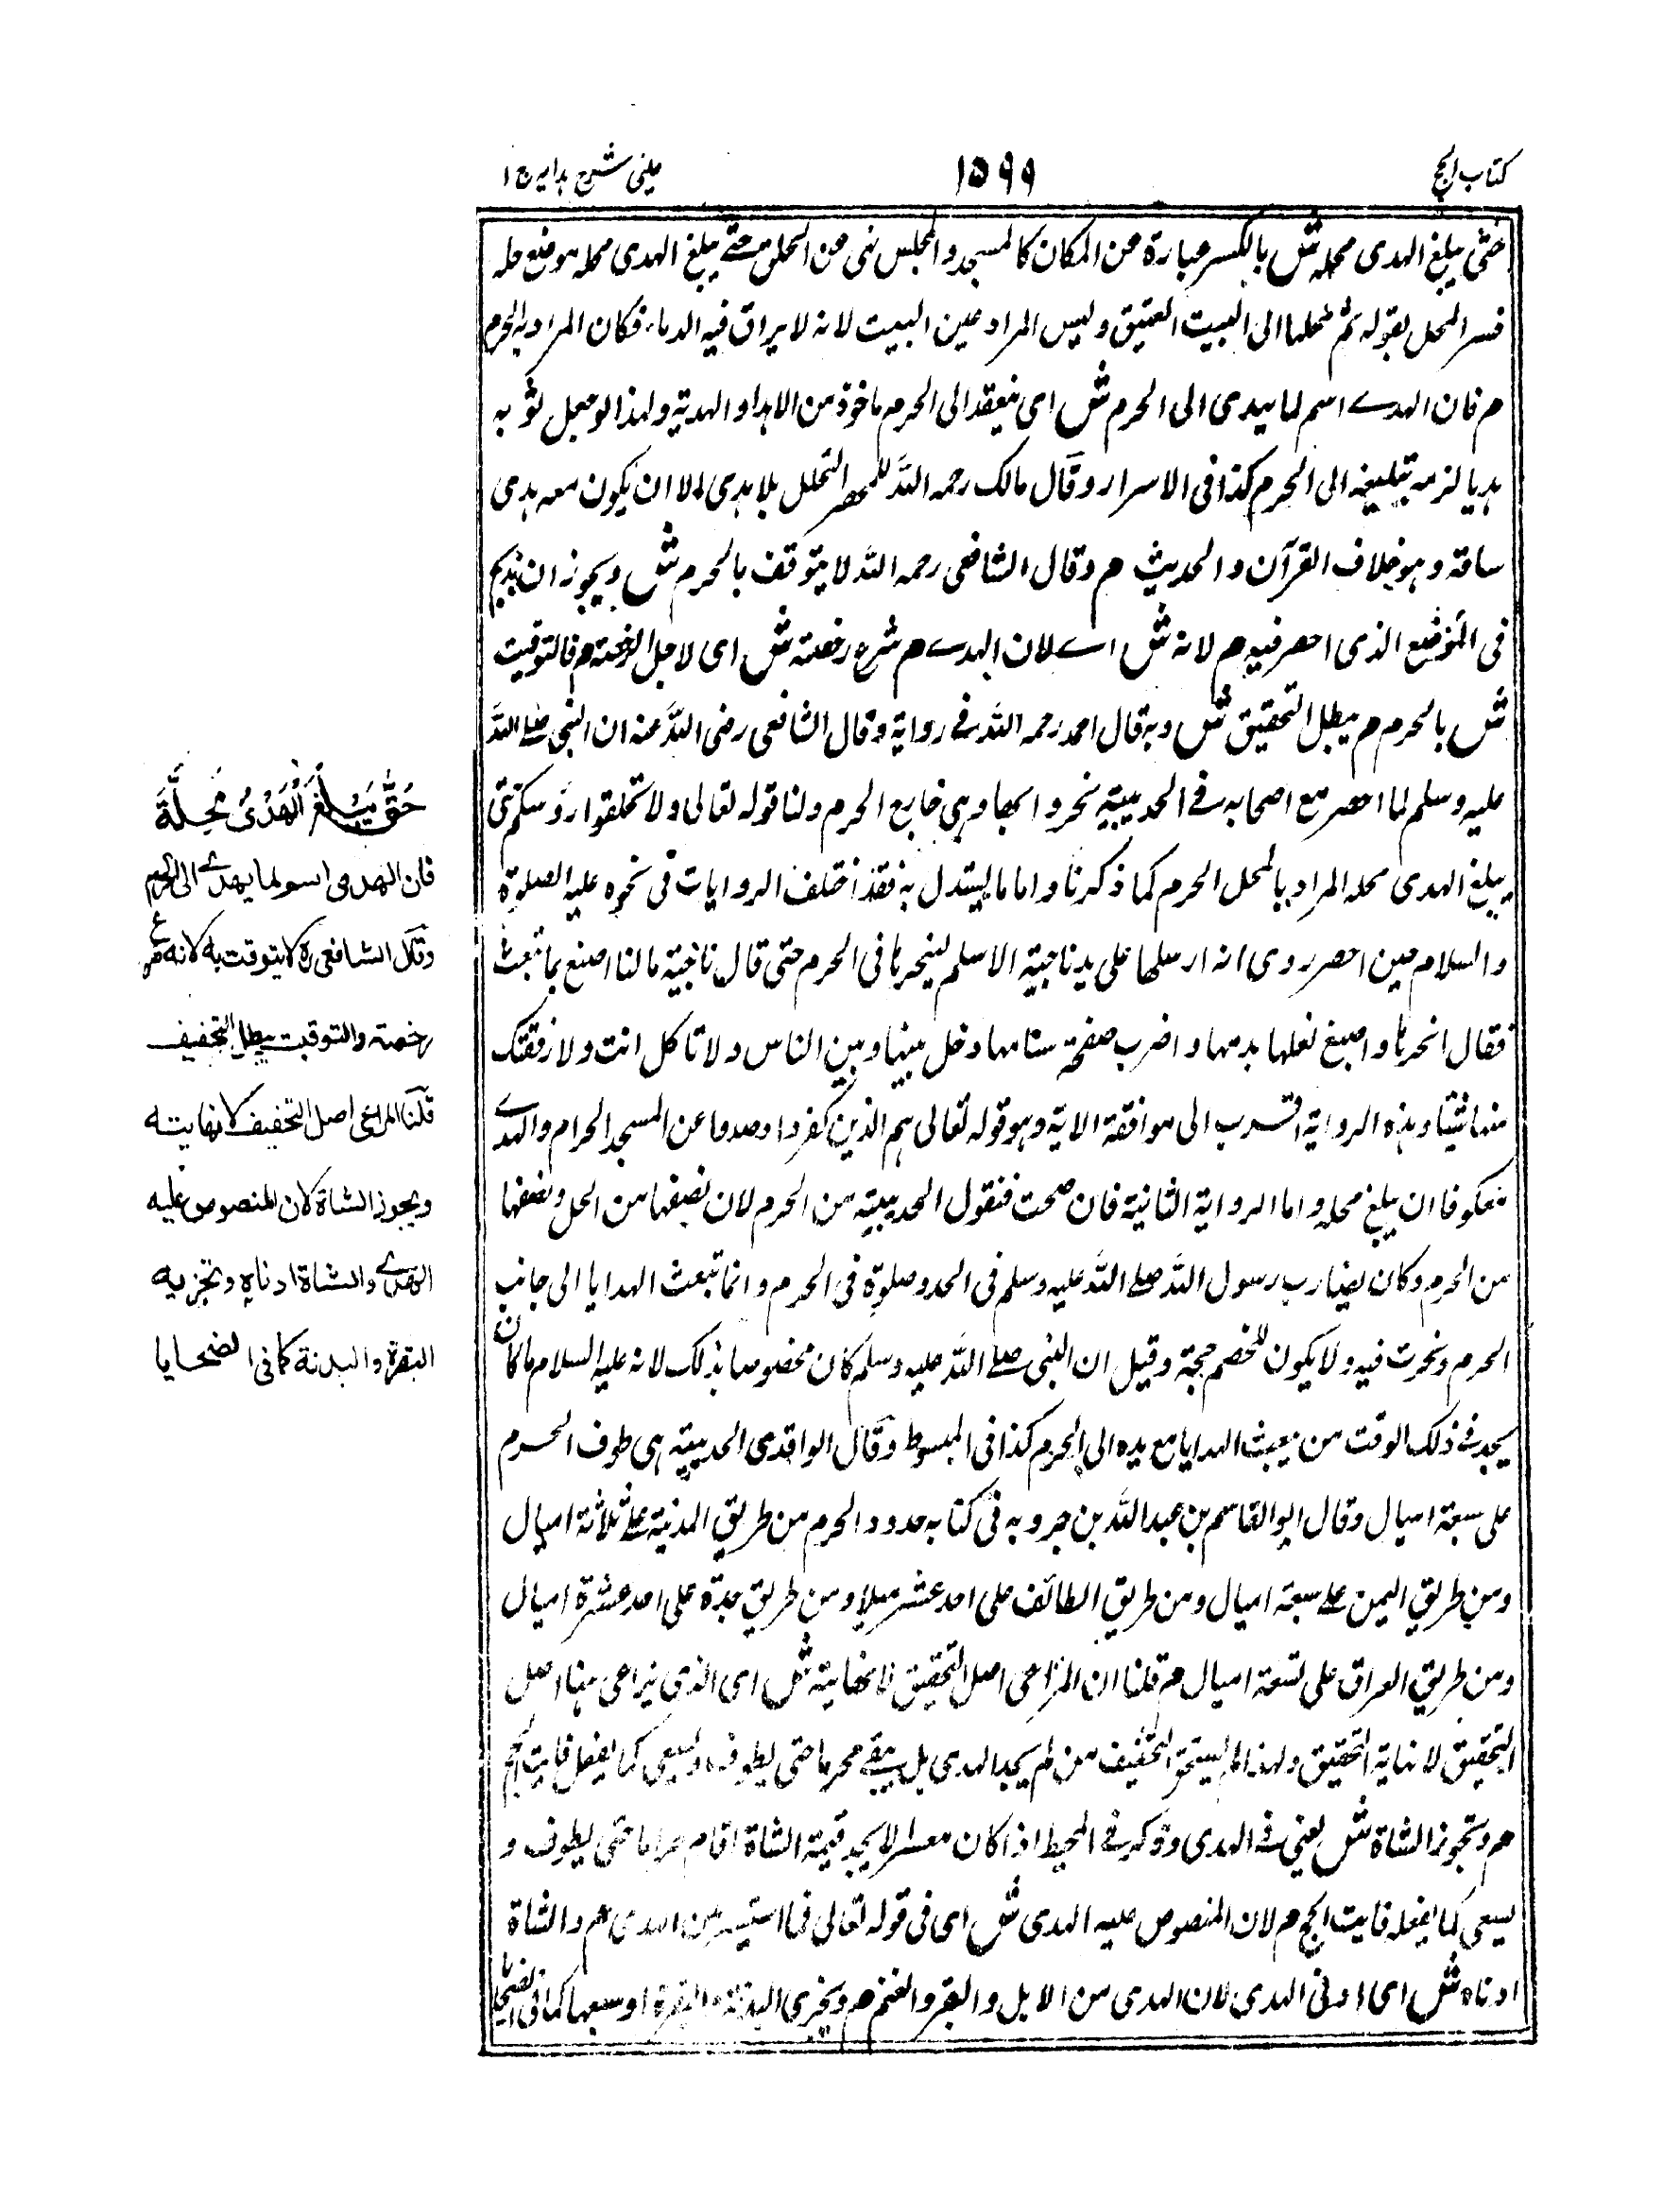 كتاب الحج
١٥٩٩
عینی شرح ہدایہ ج ۱
حتى يبلغ الهدى محله ش بالكسر عبارة عن المكان كالمسجد والمجلس نهى عن الحلق حتى يبلغ الهدى محله موضع حله
فسر المحل بقوله ثم محلها الى البيت العتيق وليس المراد عين البيت لانه لا يراق فيه الدماء فكان المراد به الحرم
م فان الهدى اسم لما يهدى الى الحرم ش اى ينقد الى الحرم ماخوذ من الاهداء والهدية ولهذا لو جعل ثوبه
هديا لزمه تبليغه الى الحرم كذا فى الاسرار وقال مالك رحمه الله للمحصر التحلل بلا هدى الا ان يكون معه هدى
ساقه وهو خلاف القرآن والحديث م وقال الشافعى رحمه الله لا يتوقف بالحرم ش ويجوز ان يذبح
فى الموضع الذى احصر فيه م لانه ش اى لان الهدى م شرع رخصة ش اى لاجل الرخصة م فالتوقيت
ش بالحرم م يبطل التحقيق ش وبه قال احمد رحمه الله فى رواية وقال الشافعى رضى الله عنه ان النبى صلى الله
عليه وسلم لما احصر مع اصحابه فى الحديبية نحروا بها وهى خارج الحرم ولنا قوله تعالى ولا تحلقوا رؤسكم حتى
يبلغ الهدى محله المراد بالمحل الحرم كما ذكرنا واما ما يستدل به فقد اختلف الروايات فى نحره عليه الصلوة
والسلام حين احصر روى انه ارسلها على يد ناجية الاسلم لينحرها فى الحرم حتى قال ناجية مالنا اصنع بما تبعث
فقال انحرها واصبغ نعلها بدمها واضرب صفحة سنامها وخل بينها وبين الناس ولا تاكل انت ولا رفقتك
منها شيئا وهذه الرواية اقرب الى موافقة الاية وهو قوله تعالى هم الذين كفروا وصدوا عن المسجد الحرام والهدى
معكوفا ان يبلغ محله واما الرواية الثانية فان صحت فنقول الحديبية من الحرم لان نصفها من الحل ونصفها
من الحرم وكان يضارب رسول الله صلى الله عليه وسلم فى الحد وصلوة فى الحرم وانما تبعث الهدايا الى جانب
الحرم ونحرت فيه ولا يكون للخصم حجة وقيل ان النبى صلى الله عليه وسلم كان مخصوصا بذلك لانه عليه السلام ما كان
يجد فى ذلك الوقت من يبعث الهدايا مع يده الى الحرم كذا فى المبسوط وقال الواقدى الحديبية هى طرف الحرم
على سبعة اميال وقال ابو القاسم بن عبد الله بن جروبه فى كتابه حدود الحرم من طريق المدينة على ثلاثة اميال
ومن طريق اليمن على سبعة اميال ومن طريق الطائف على احد عشر ميلا ومن طريق جدة على احد عشرة اميال
ومن طريق العراق على تسعة اميال م قلنا ان المراعى اصل التحقيق لا نهايته ش اى الذى يراعى هنا اصل
التحقيق لا نهاية التحقيق ولهذا لم يستحق التخفيف من لم يجد الهدى بل يبقى محرما حتى يطوف ويسعى كما يفعل فايت الحج
م وتجوز الشاة ش يعنى فى الهدى وذكر فى المحيط اذا كان معسرا لا يجد قيمة الشاة اقام حراما حتى يطوف و
يسعى كما يفعله فايت الحج م لان المنصوص عليه الهدى ش اى فى قوله تعالى فما استيسر من الهدى م والشاة
ادناه ش اى ادنى الهدى لان الهدى من الابل والبقر والغنم م ويجزى البدنة والبقرة او سبعها كما فى الضحايا
حَتَّى يَبْلُغَ الْهَدْىُ مَحِلَّهُ
فان الهدى اسم لما يهدى الى الحرم
وقال الشافعى ره لا يتوقت به لانه شرع
رخصة والتوقيت يبطل التخفيف
قلنا المراعى اصل التخفيف لا نهايته
ويجوز الشاة لان المنصوص عليه
الهدى والشاة ادناه وتجزيه
البقرة والبدنة كما فى الضحايا